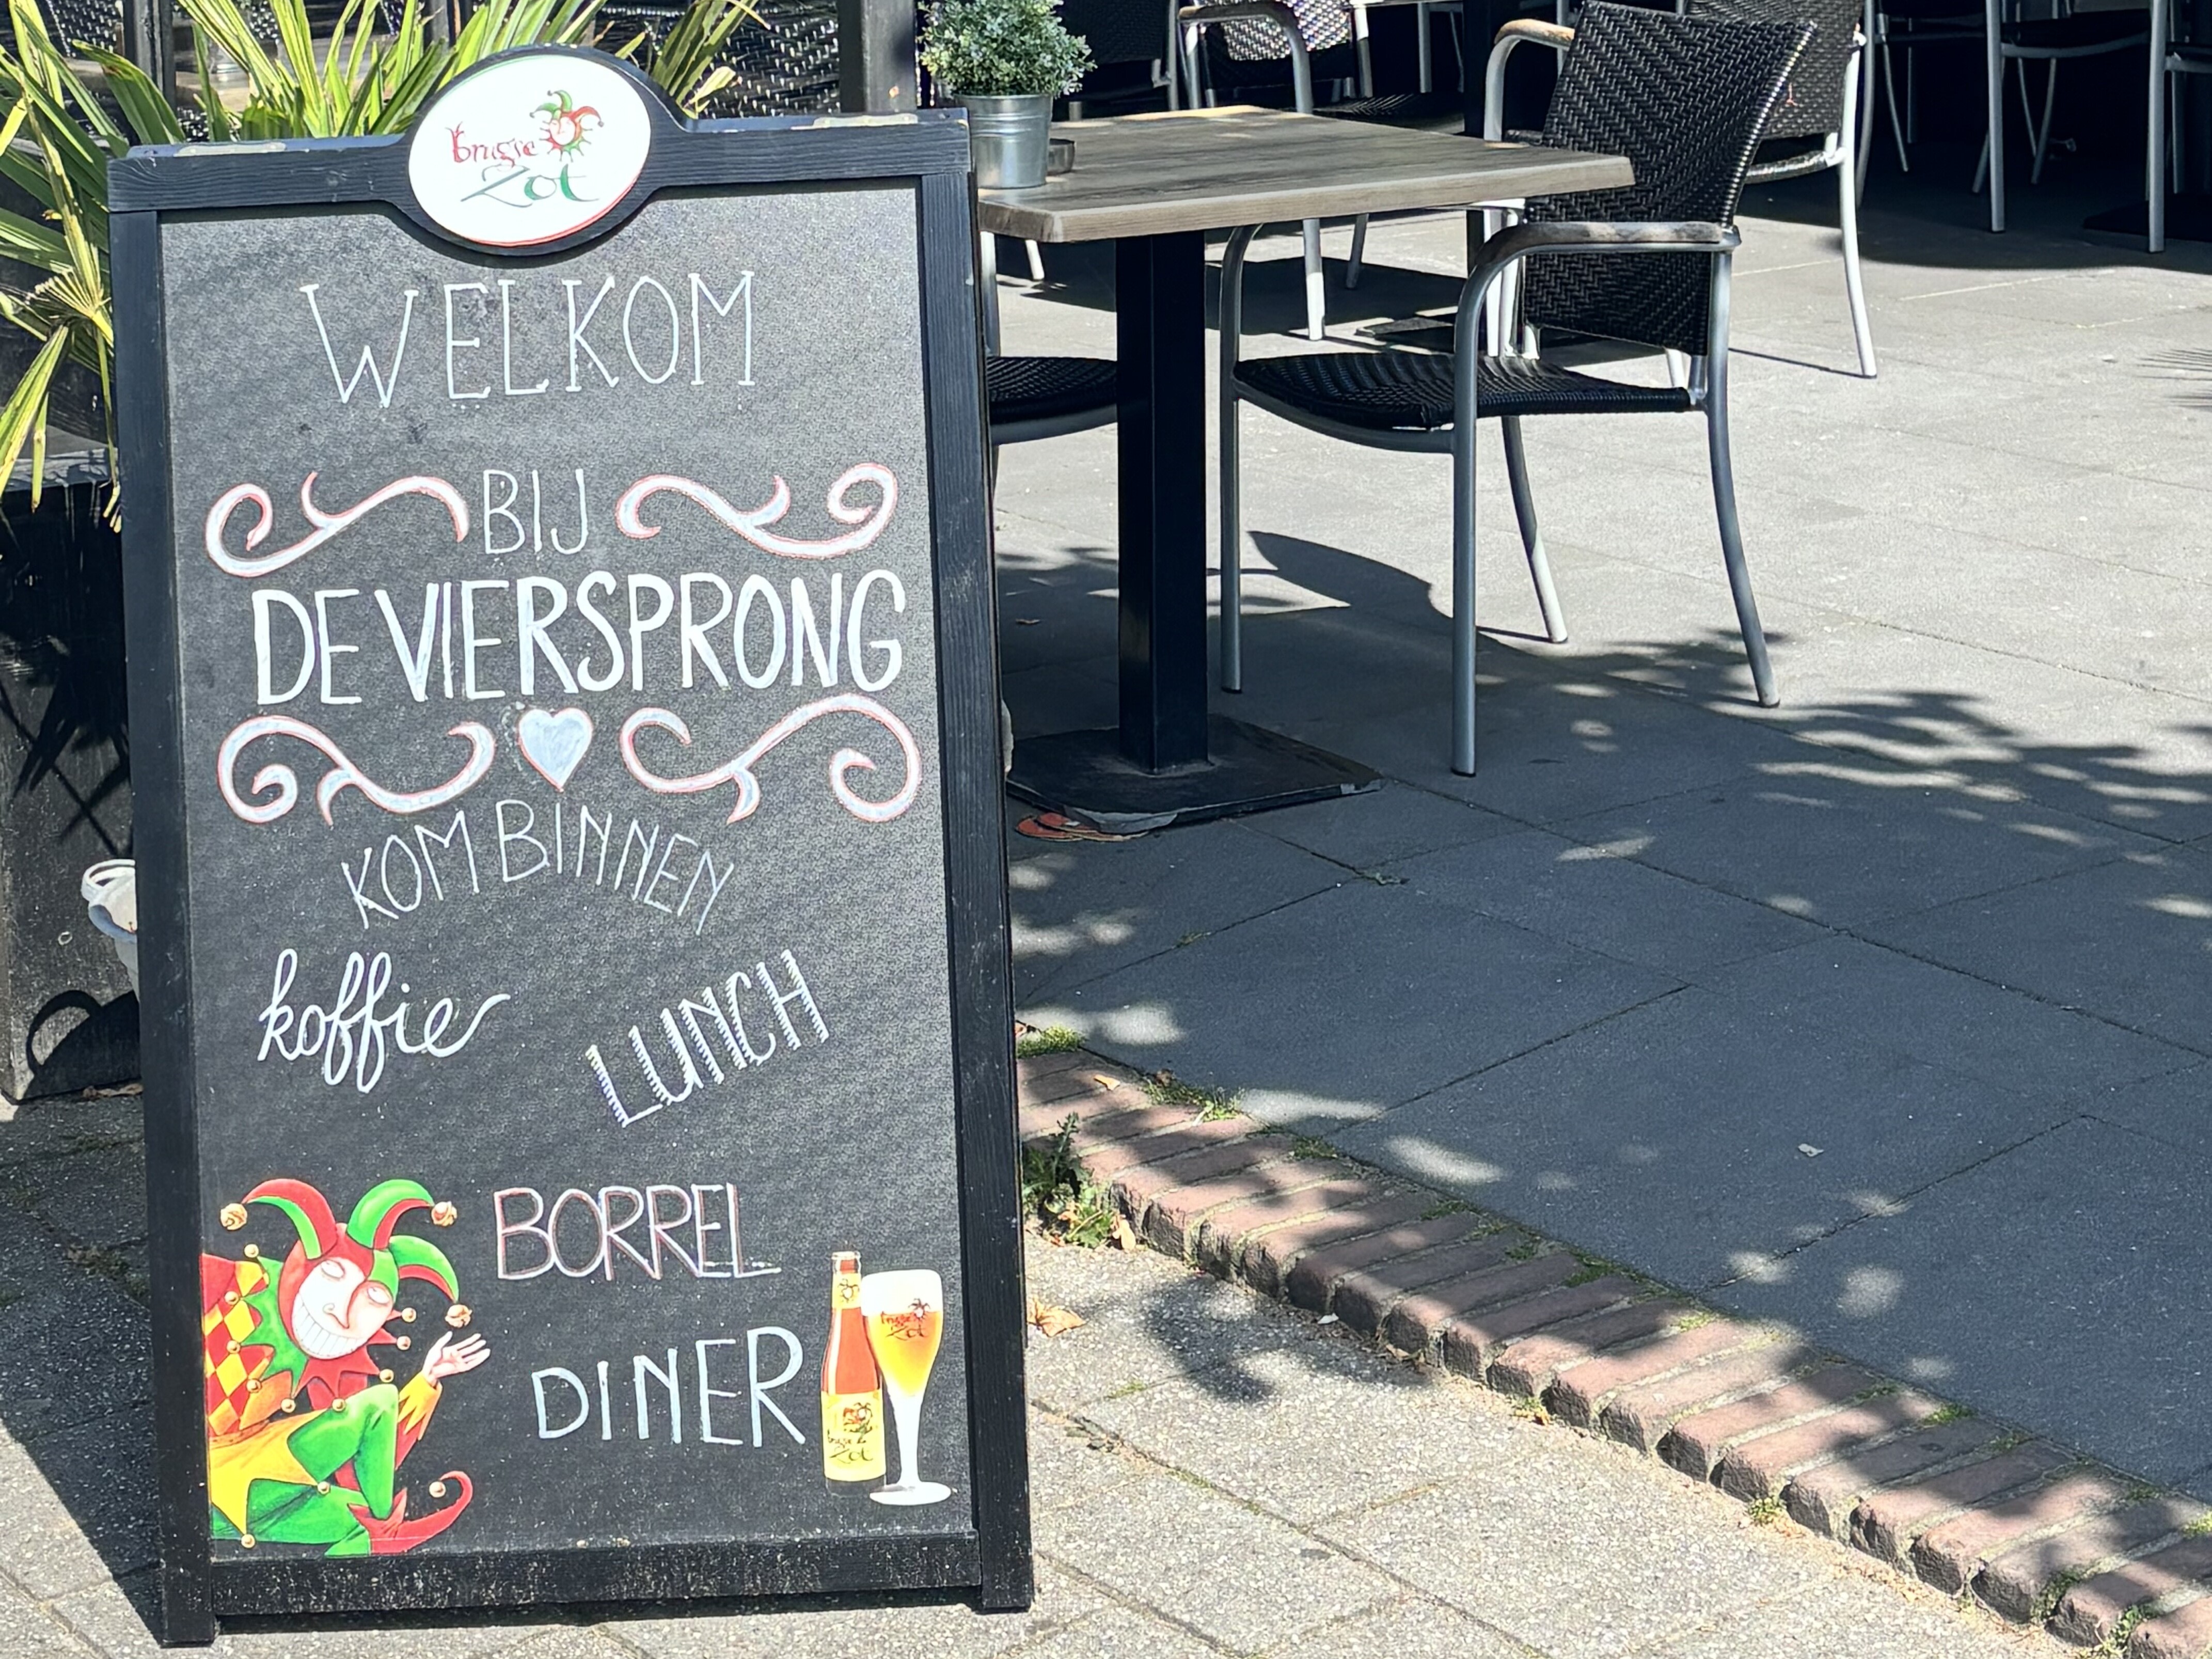 Brugse
Zot
WELKOM
BIJ
DE VIERSPRONG
KOM BINNEN
koffie
LUNCH
BORREL
DINER
Brugse
Zot
Brugse
Zot